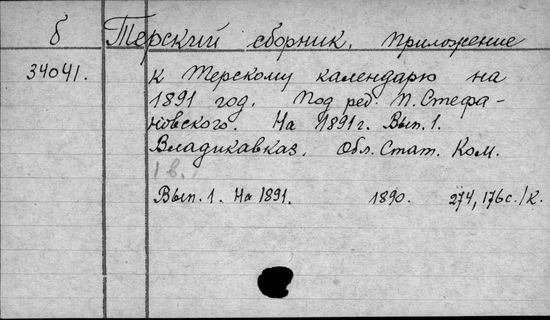 б Терский сборник. Приложение
34041. к Терскому календарю на
1891 год. Под ред. П. Стефа-
новского. На 1891 г. Вып. 1.
Владикавказ, Обл. Стат. Ком.
1 в.
Вып. 1. На 1891. 1890. 274, 176 с./к.